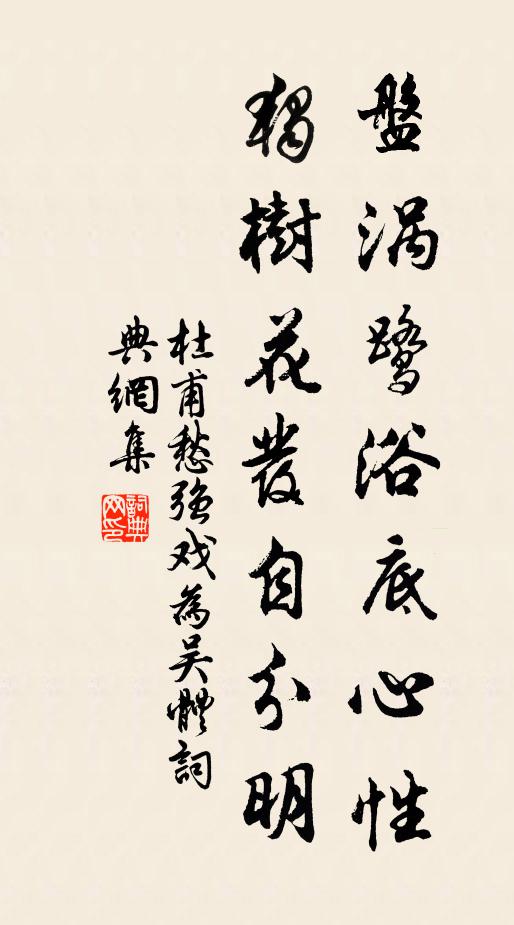 盤渦鷺浴底心性
獨樹花發自分明
杜甫愁強戏為吴體詞
典網集
詞典网印